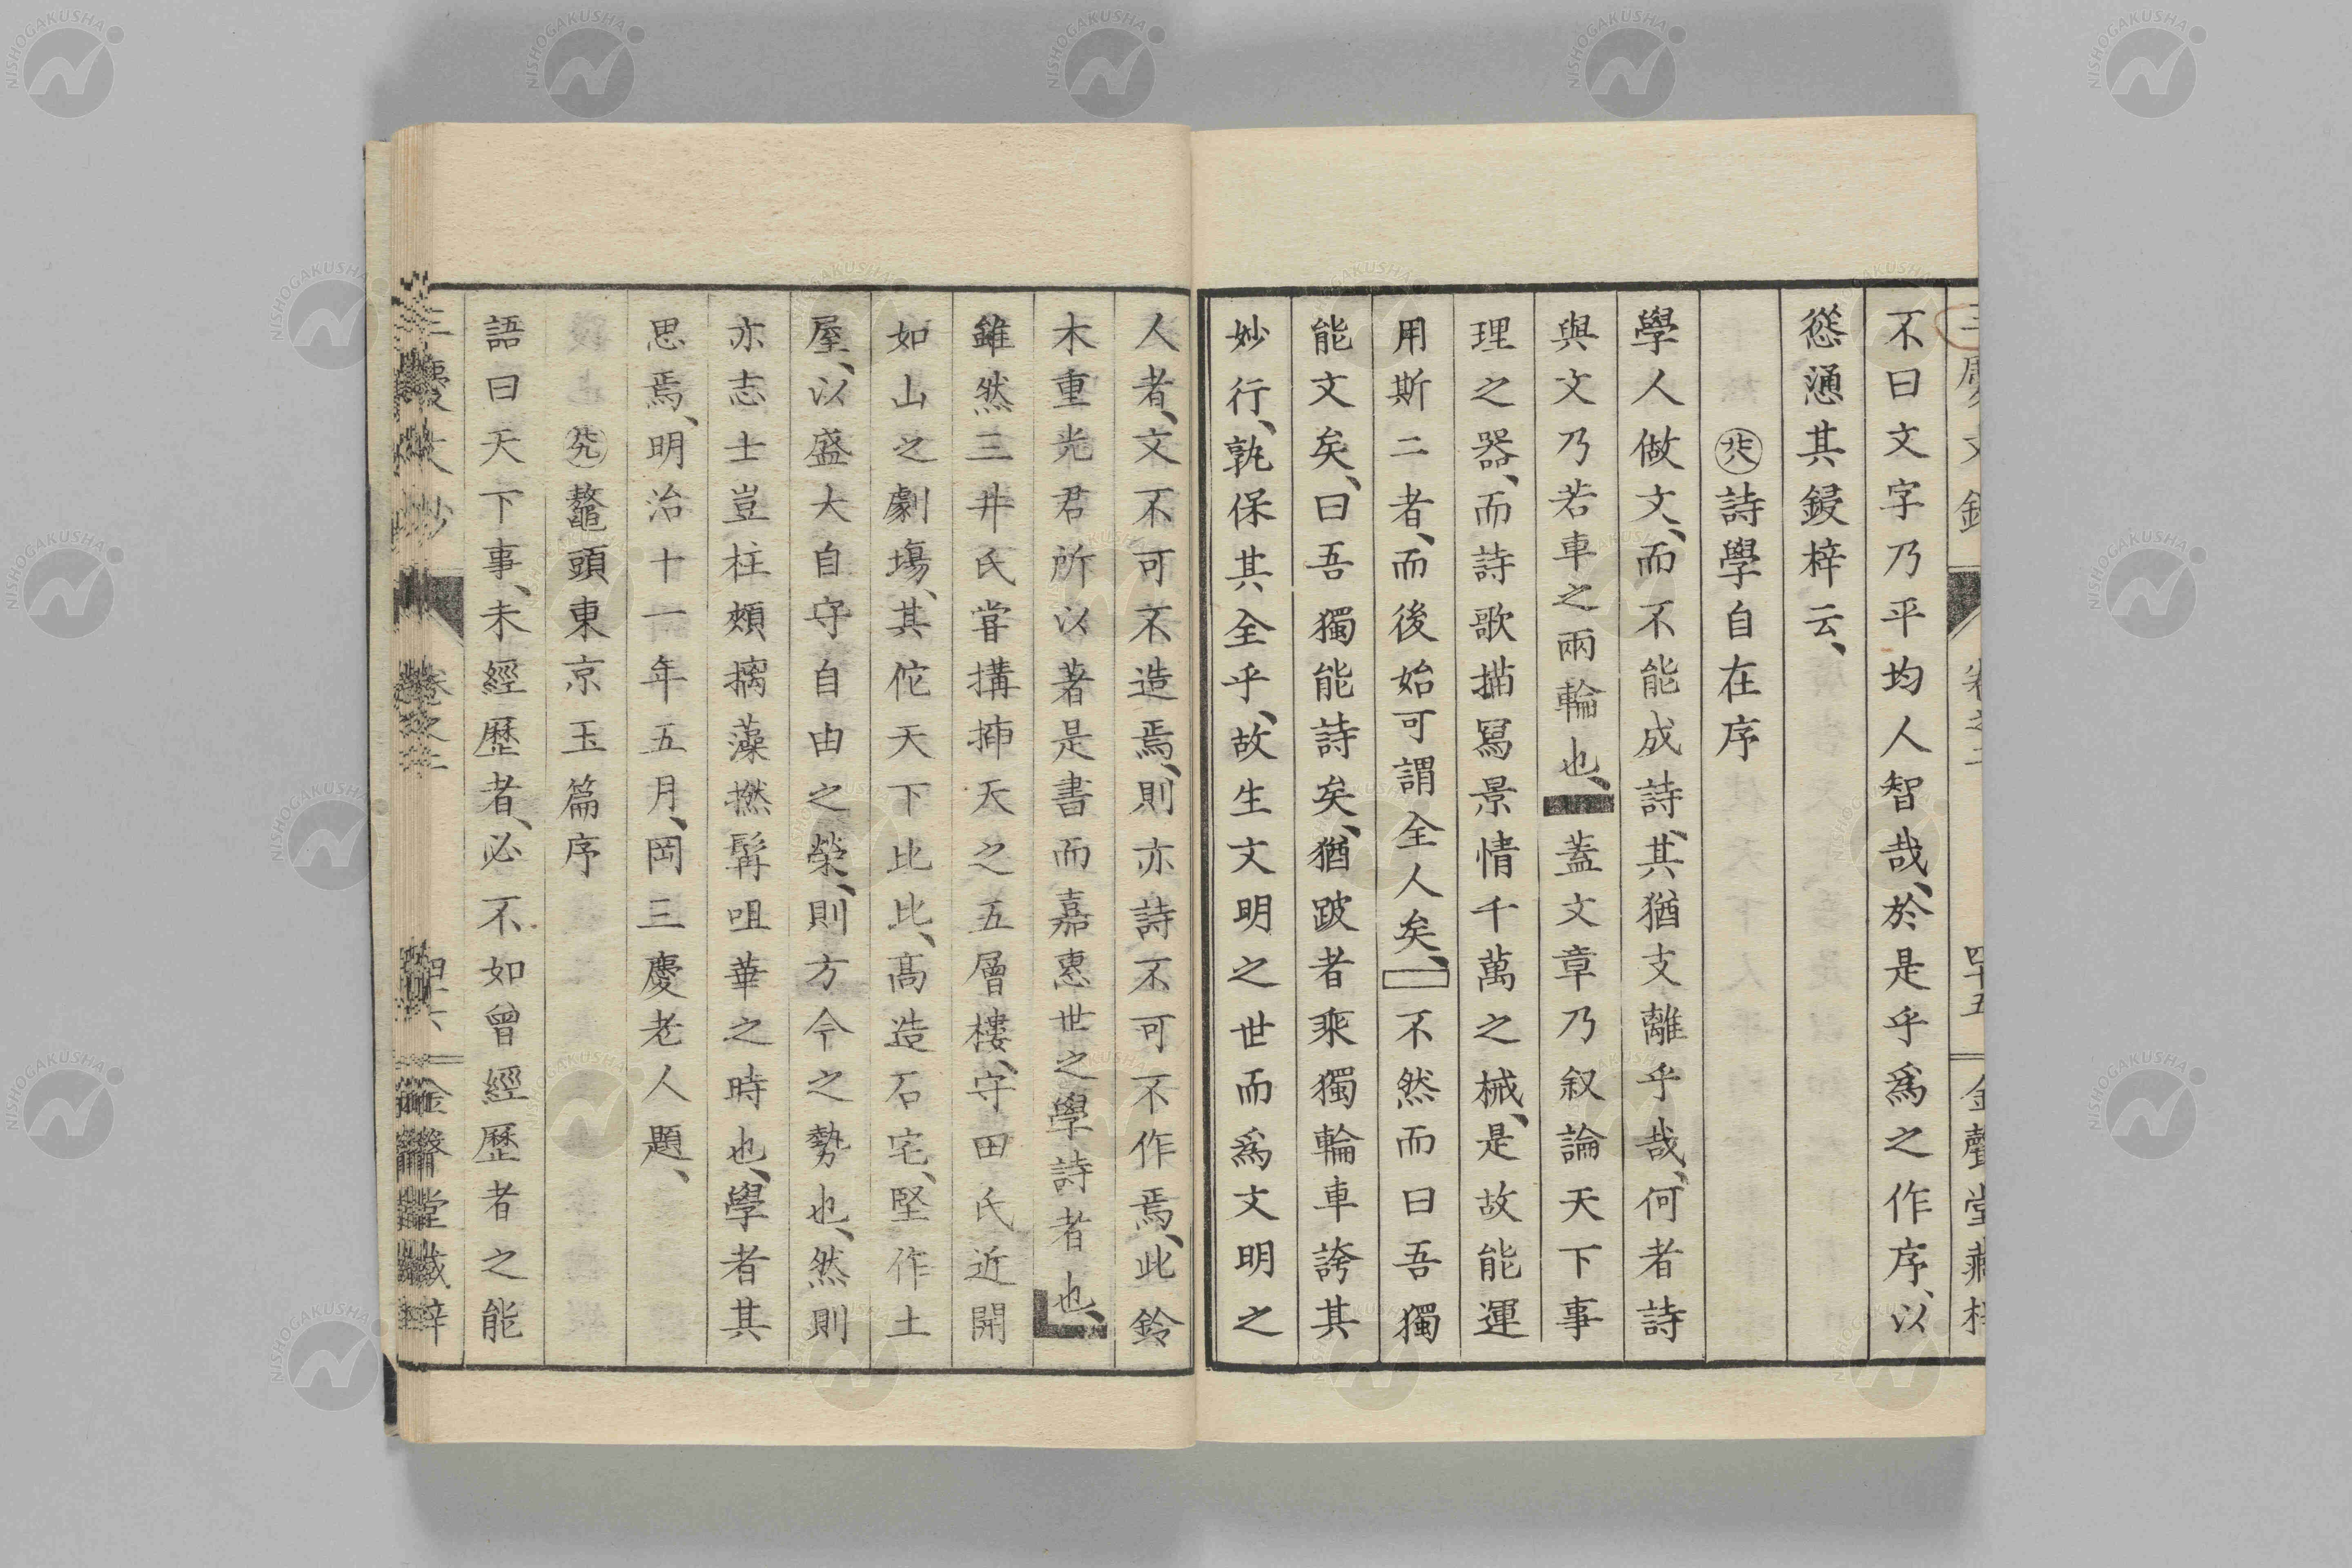 三慶文鈔 卷之二 四十五 金聲堂藏梓
不曰文字乃平均人智哉、於是乎爲之作序、以
慫慂其鋟梓云、
詩學自在序
學人做文、而不能成詩、其猶支離乎哉、何者詩
與文乃若車之兩輪也、蓋文章乃叙論天下事
理之器、而詩歌描冩景情千萬之械、是故能運
用斯二者、而後始可謂全人矣、不然而曰吾獨
能文矣、曰吾獨能詩矣、猶跛者乘獨輪車誇其
妙行、孰保其全乎、故生文明之世而爲文明之
人者、文不可不造焉、則亦詩不可不作焉、此鈴
木重光君所以著是書而嘉惠世之學詩者也、
雖然三井氏嘗搆揷天之五層樓、守田氏近開
如山之劇塲、其佗天下比比、髙造石宅、堅作土
屋、以盛大自守自由之榮、則方今之勢也、然則
亦志士豈柱頰摛藻撚髯咀華之時也、學者其
思焉、明治十一年五月、岡三慶老人題、
鼇頭東京玉篇序
語曰天下事、未經歷者、必不如曾經歷者之能
三慶文鈔 卷之二 四十六 金聲堂藏梓
NISHOGAKUSHA